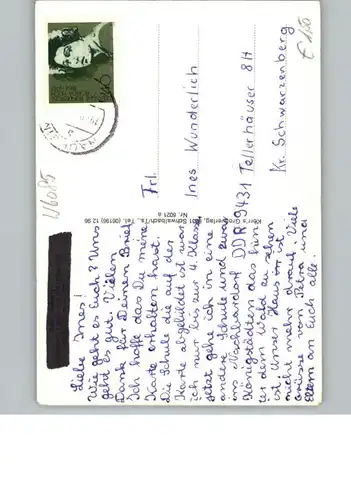 Liebe Ines!
Wie geht es Euch? Uns
geht es gut. Vielen
Dank für Deinen Brief.
Ich hoffe das Du meine
Karte erhalten hast.
Die Schule die auf der
Karte abgebildet ist war
ich nur bis zur 4. Klasse
jetzt gehe ich in eine
andere Schule und zwar
ins Nachbardorf
Königstädten das hin-
ter dem Wald zu sehen
ist. Unser Haus ist
nicht mehr drauf. Viele
Grüsse von Petra und
Eltern an Euch alle.
Frl.
Ines Wunderlich
DDR 9431 Tellerhäuser 8H
Kr. Schwarzenberg
Nr. 6021 a
W6085
€ 1,50